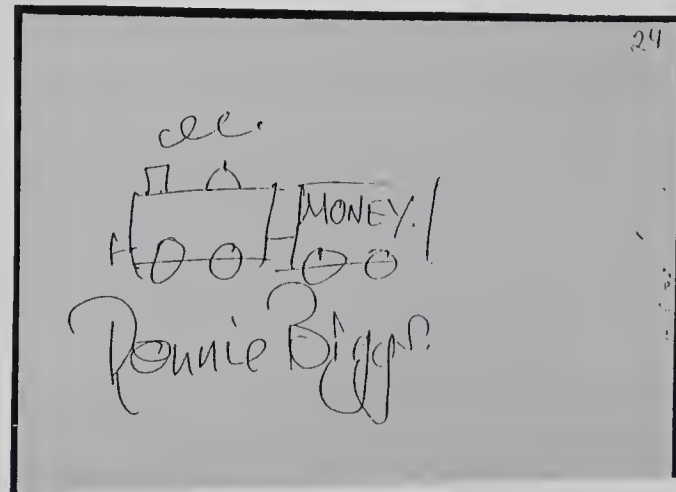 24
MONEY.
Ronnie Biggs.